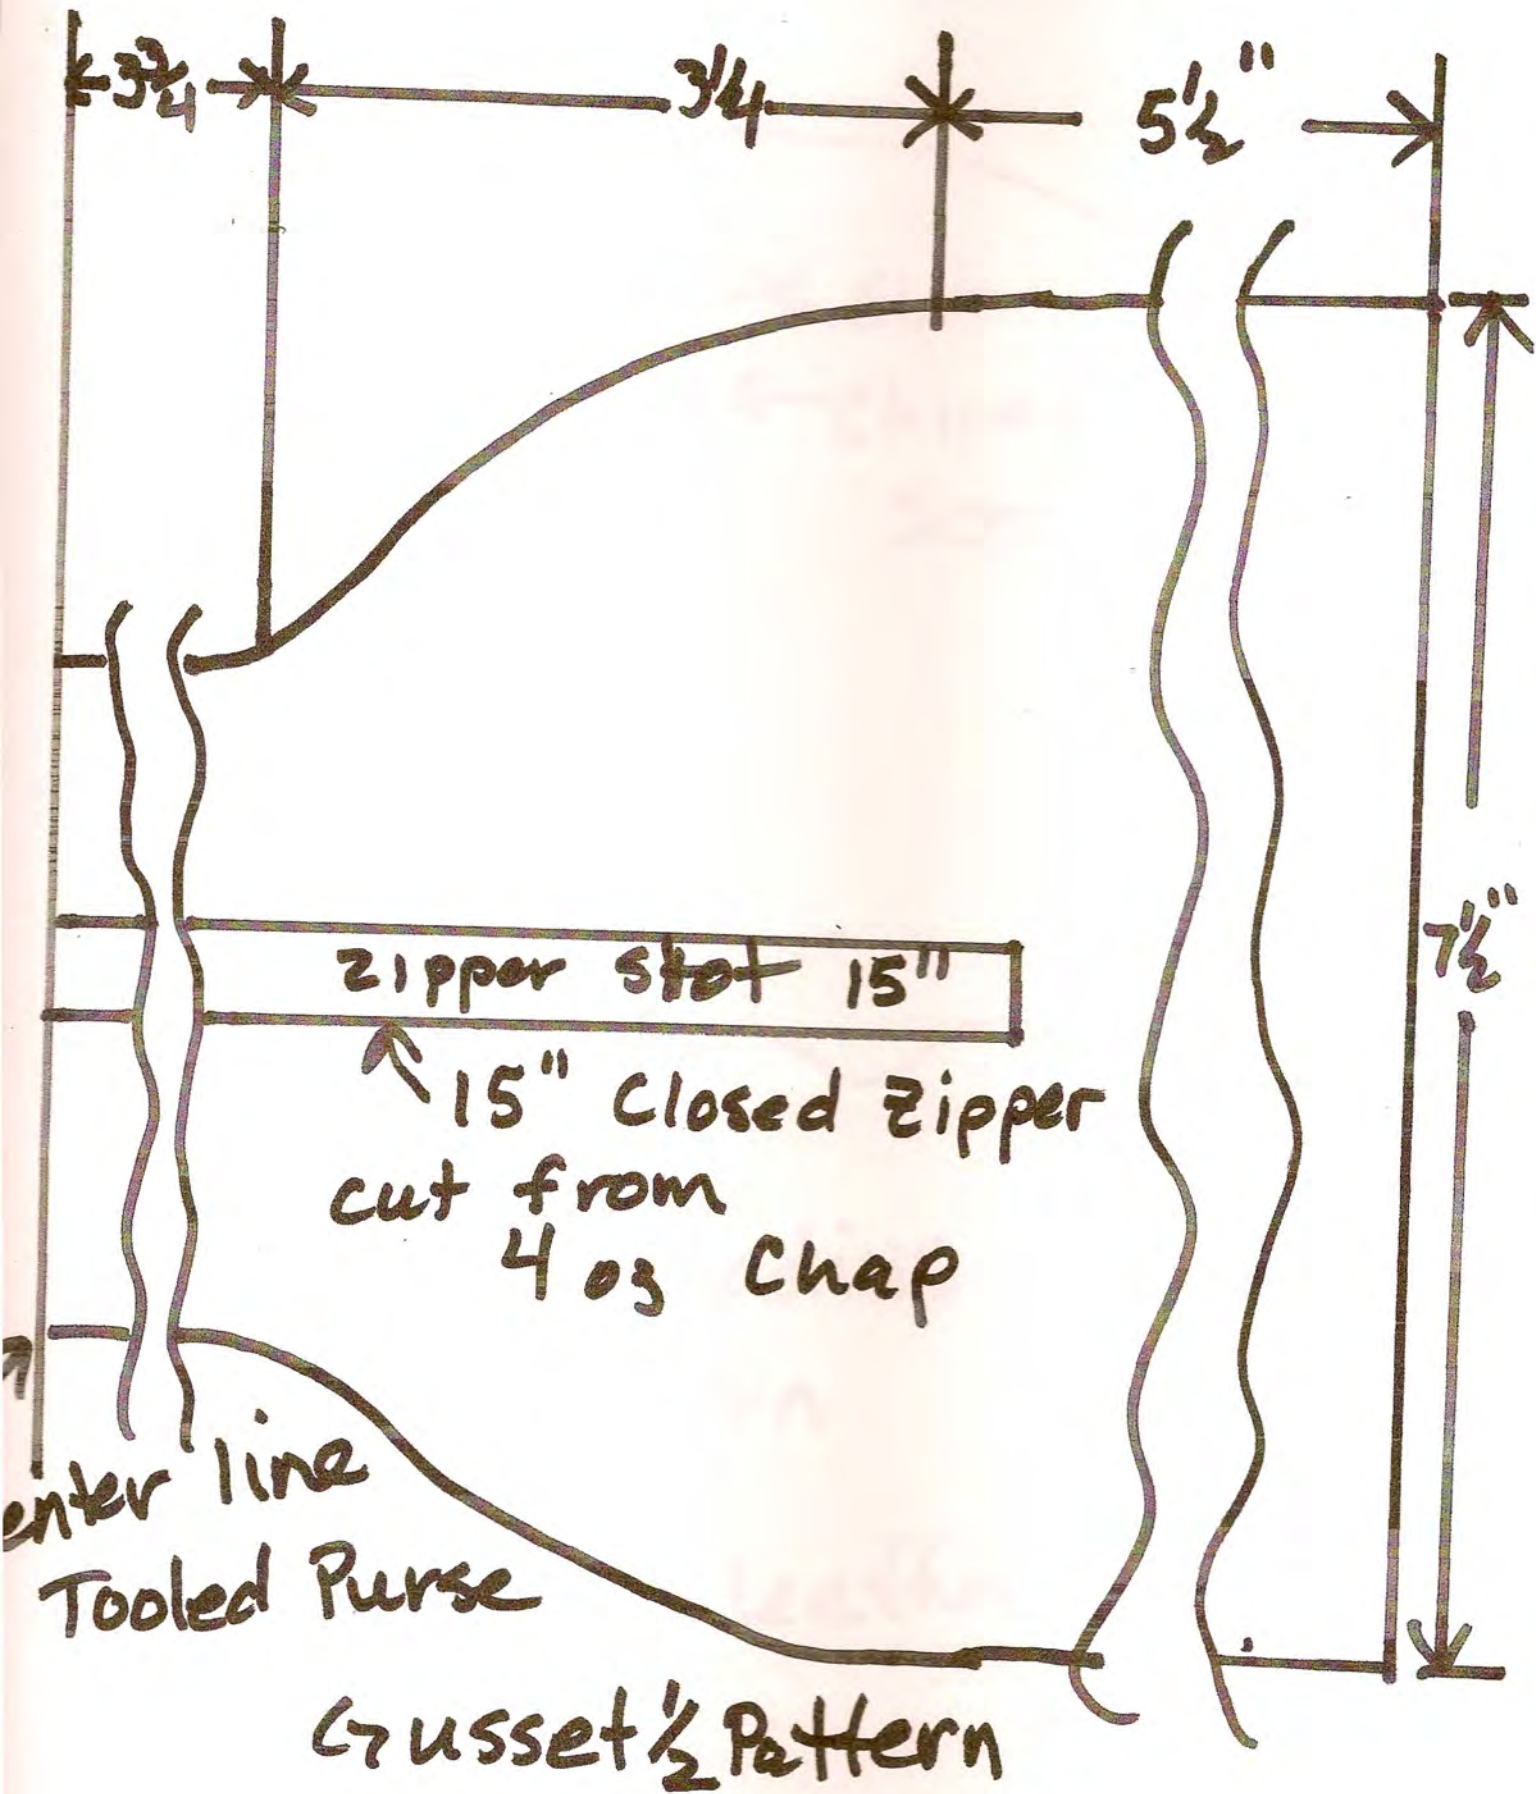 3 3/4
3 1/4
5 1/2"
zipper slot 15"
7 1/2"
15" Closed zipper
cut from
4 oz Chap
enter line
Tooled Purse
Gusset 1/2 Pattern